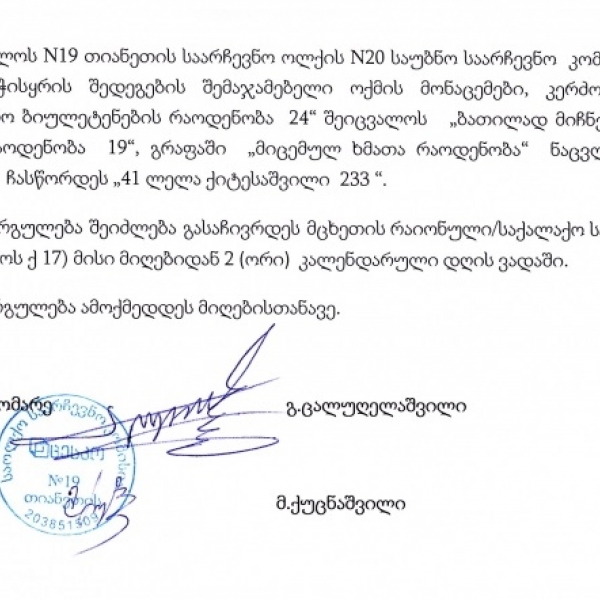 ლოს N19 თიანეთის საარჩევნო ოლქის N20 საუბნო საარჩევნო კომ
ჭისყრის შედეგების შემაჯამებელი ოქმის მონაცემები, კერძო
ო ბიულეტენების რაოდენობა 24“ შეიცვალოს „ბათილად მიჩნე
აოდენობა 19“, გრაფაში „მიცემულ ხმათა რაოდენობა“ ნაცვლ
ჩასწორდეს „41 ლელა ქიტესაშვილი 233 “.
რგულება შეიძლება გასაჩივრდეს მცხეთის რაიონული/საქალაქო ს
ოს ქ 17) მისი მიღებიდან 2 (ორი) კალენდარული დღის ვადაში.
რგულება ამოქმედდეს მიღებისთანავე.
ომარე
გ.ცალუღელაშვილი
საოლქო საარჩევნო კომისია
ცესკო
№19
თიანეთის
203851309
მ.ქუცნაშვილი